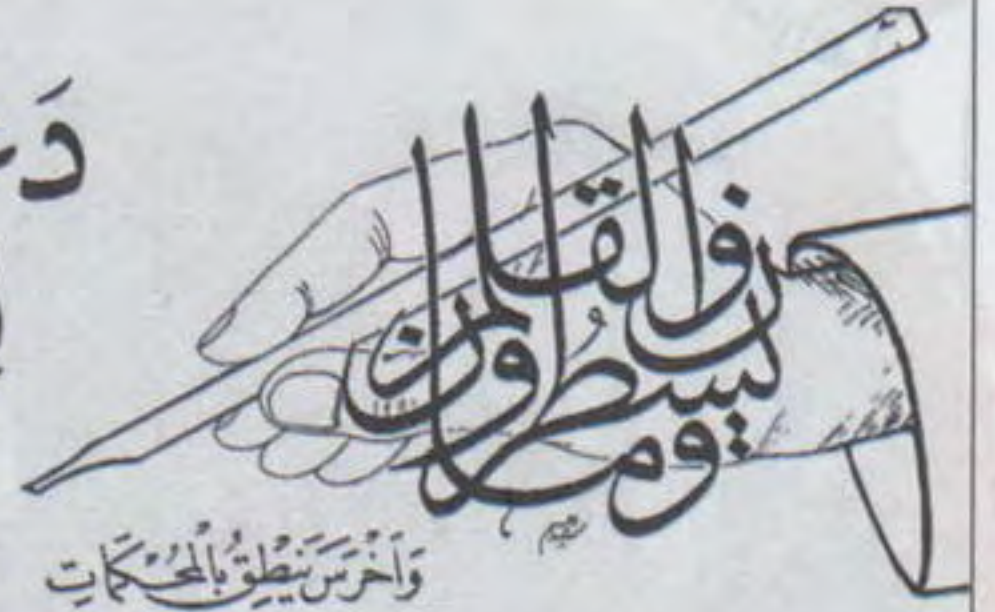 دَ
ن والقلم
وما يسطرون
وَأَخْرَسَ يَنْطِقُ بِالْمُحْكَمَاتِ